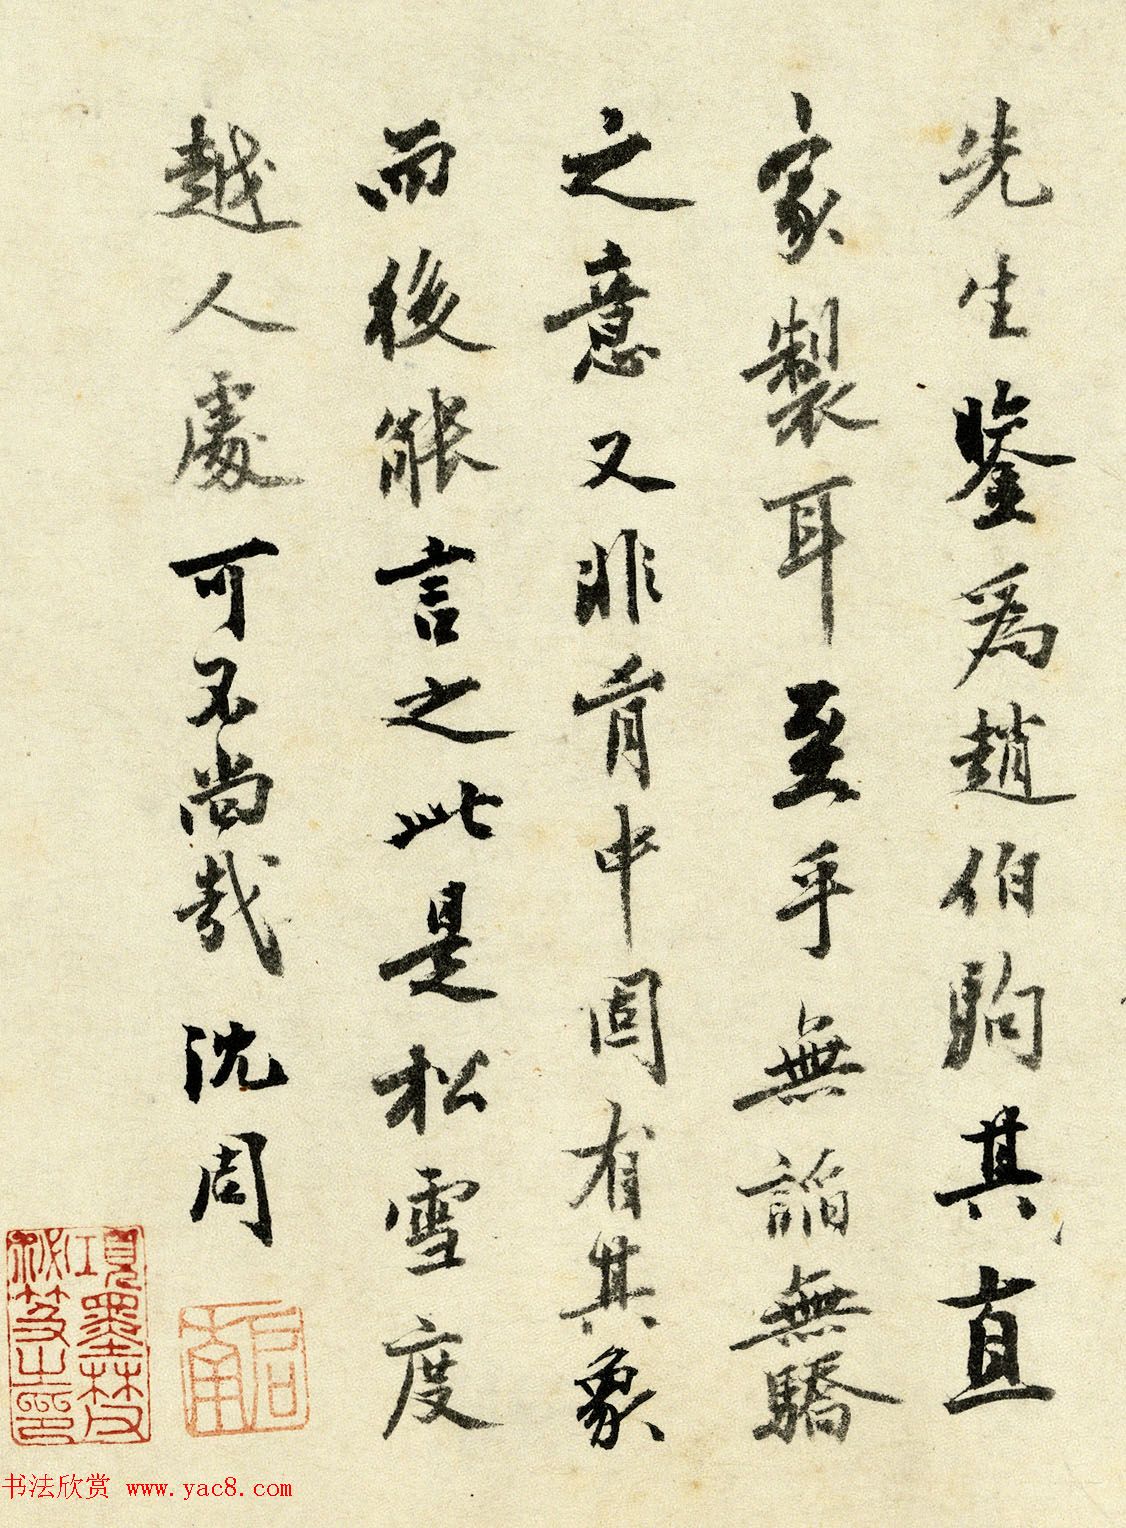 先生鑒為趙伯駒其直
家製耳至乎無諂無驕
之意又非胷中固有其象
而後能言之此是松雪度
越人處可不尚哉
沈周
啟南
項墨林父
秘笈之印
书法欣赏 www.yac8.com